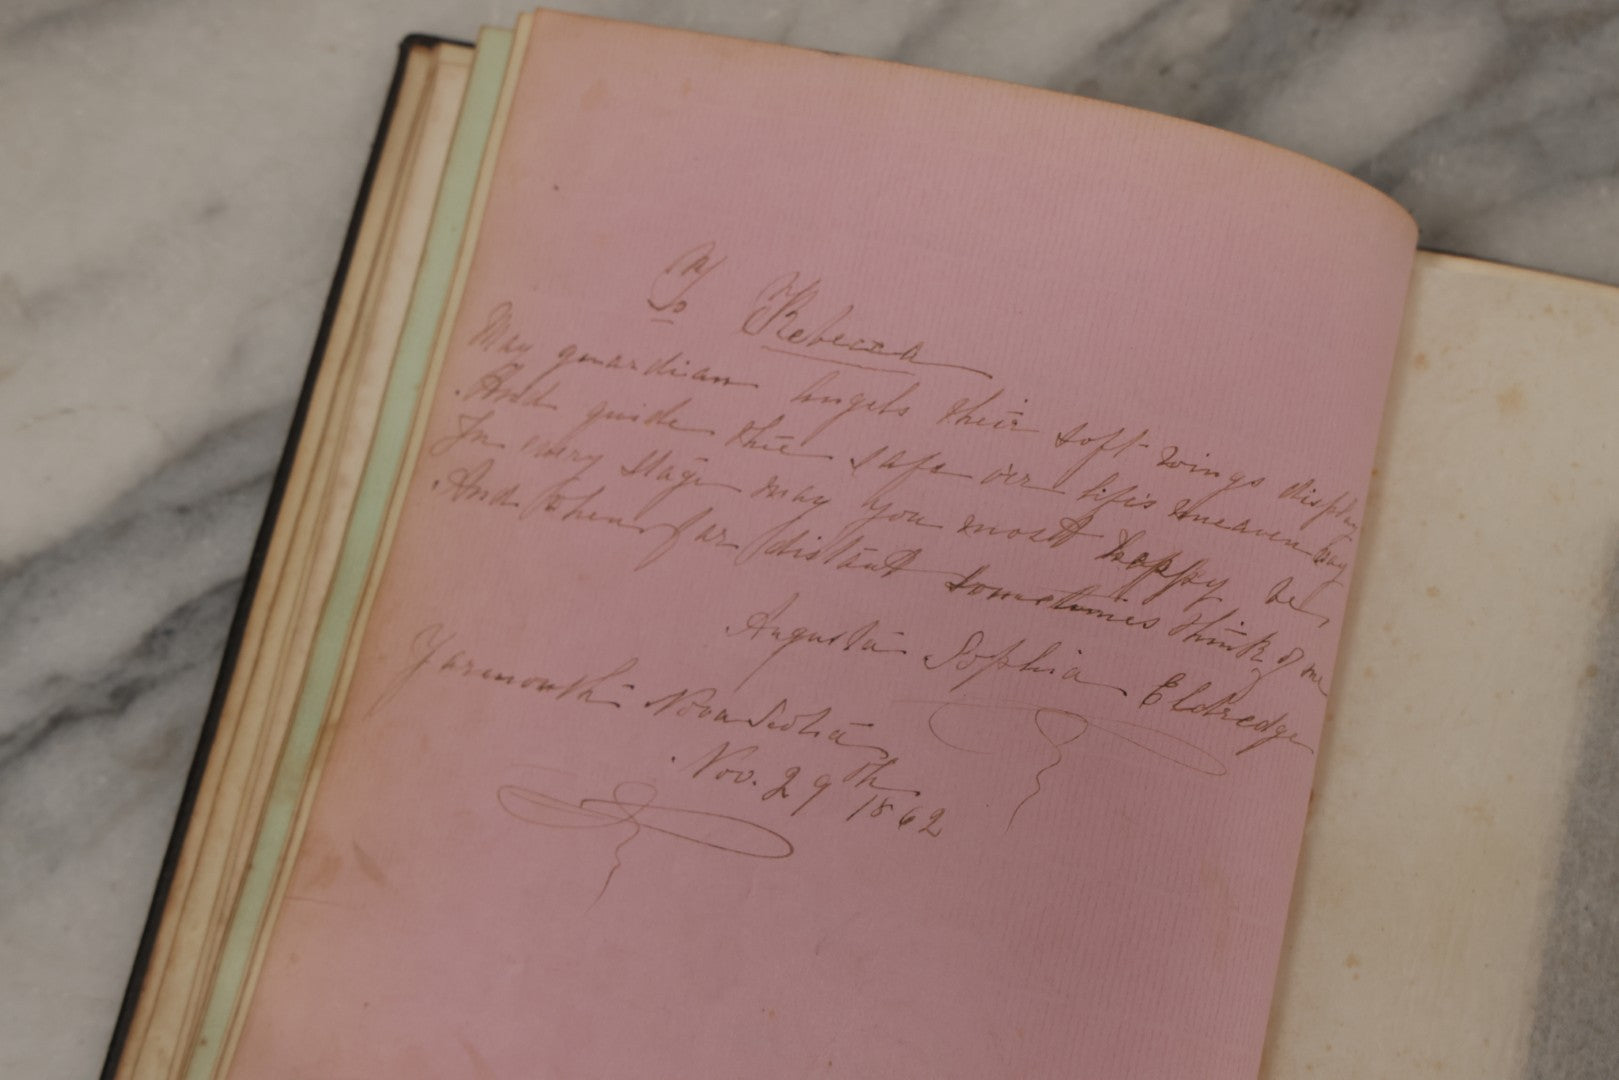 To Rebecca
May guardian Angels their soft wings display
And guide thee safe oer life's uneaven way
In every stage may you most happy be
And when far distant sometimes think of me
Augusta Sophia Eldredge
Yarmouth Nova Scotia
Nov. 29th 1862